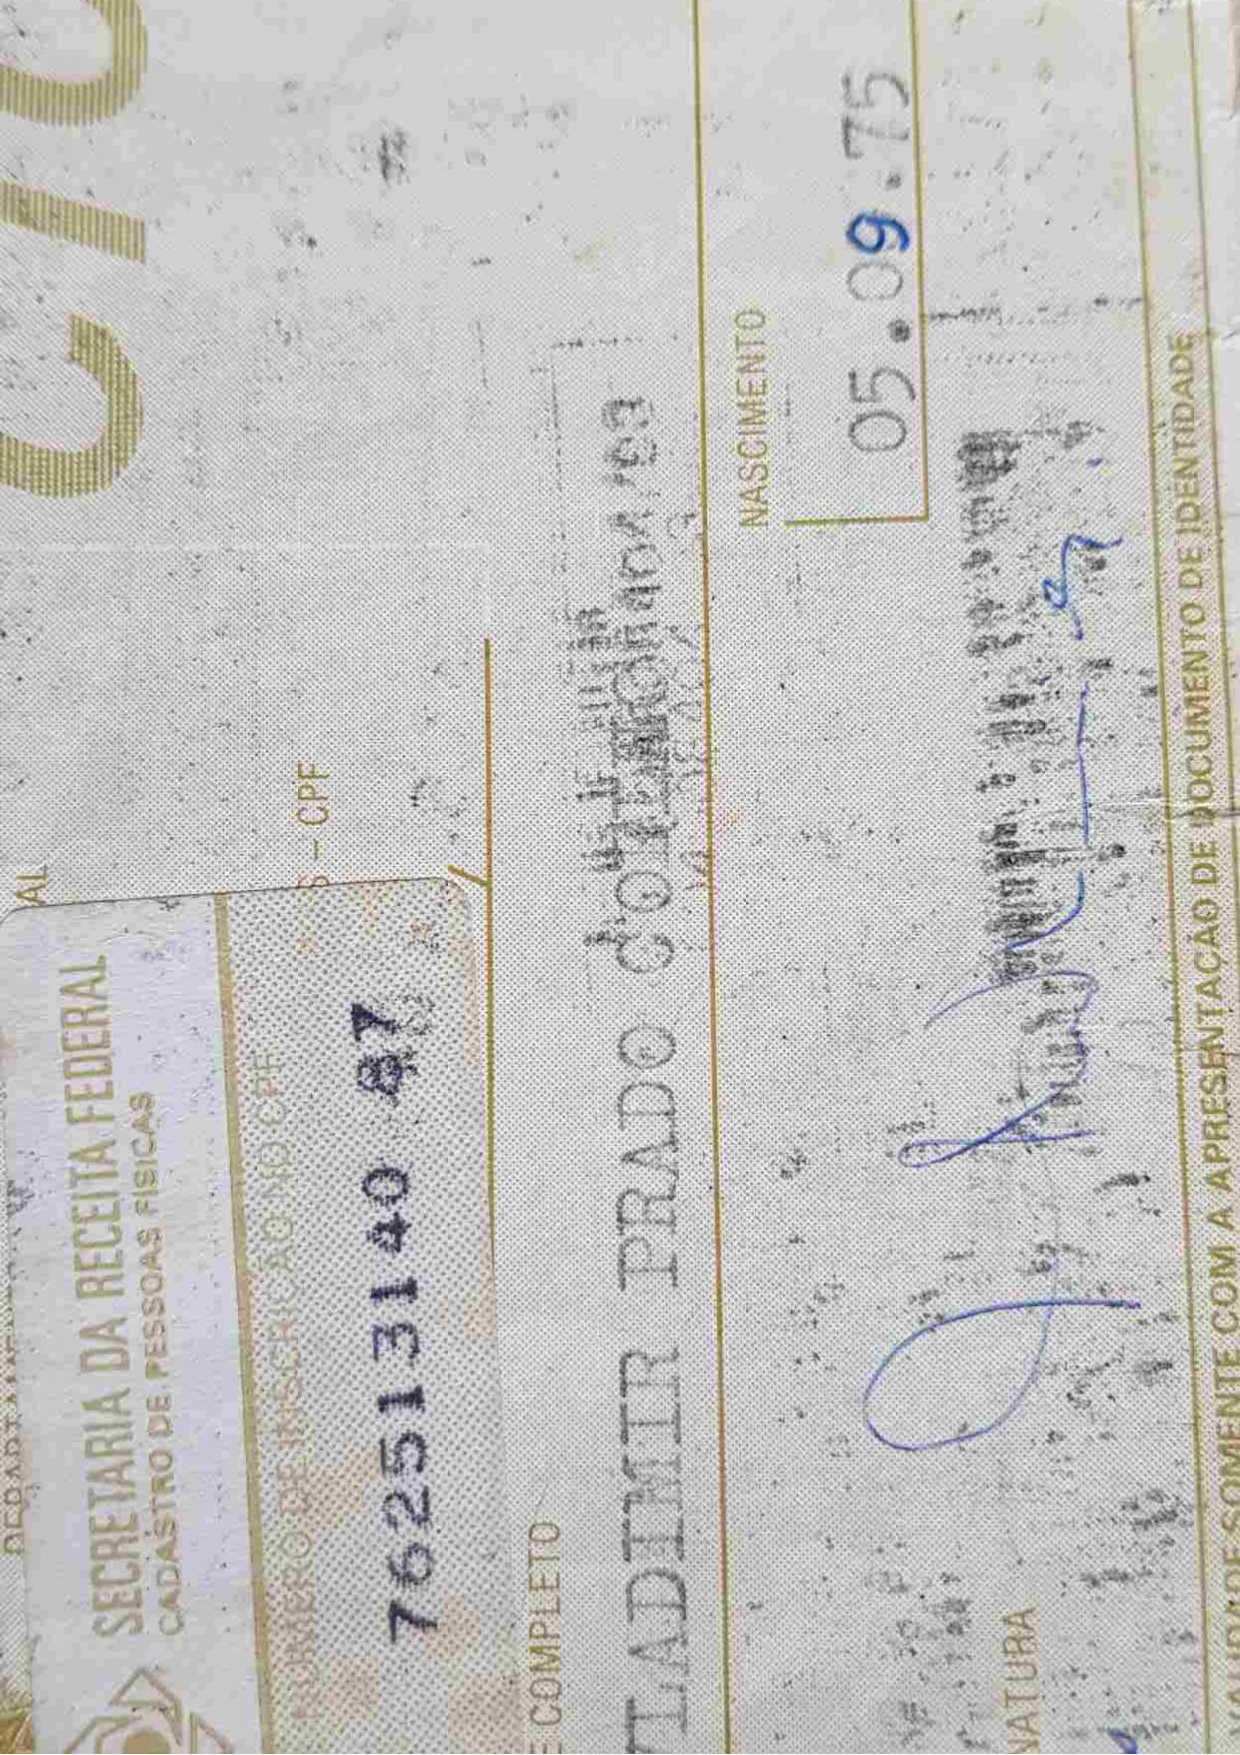 CIC
AL
SECRETARIA DA RECEITA FEDERAL
CADASTRO DE PESSOAS FISICAS
NÚMERO DE INSCRIÇÃO NO CPF
- CPF
762513140 87
E COMPLETO
VLADIMIR PRADO
NASCIMENTO
05.09.75
NATURA
VALIDADE SOMENTE COM A APRESENTAÇÃO DE DOCUMENTO DE IDENTIDADE